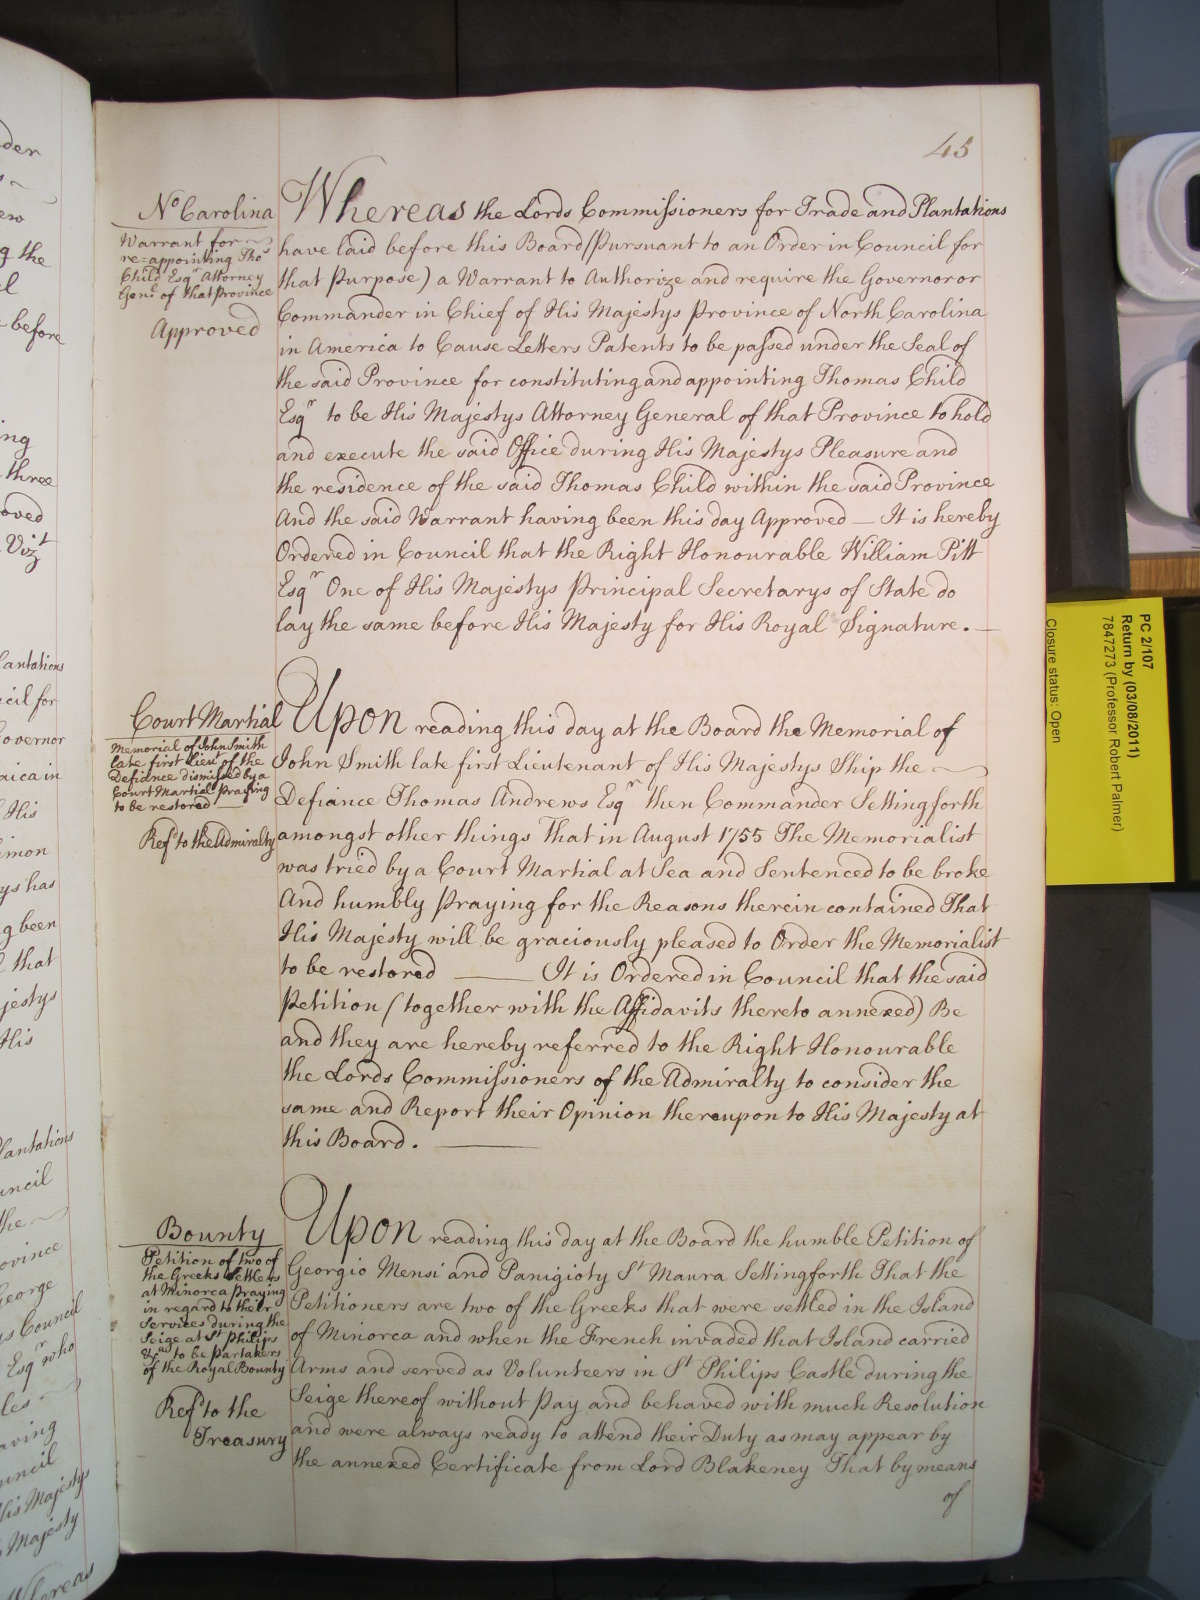 45
No Carolina
Warrant for
re-appointing Thos
Child Esqr Attorney
Genl of that Province
Approved
Whereas the Lords Commissioners for Trade and Plantations
have laid before this Board (pursuant to an Order in Council for
that purpose) a Warrant to Authorize and require the Governor or
Commander in Chief of His Majestys Province of North Carolina
in America to Cause Letters Patents to be passed under the Seal of
the said Province for constituting and appointing Thomas Child
Esqr to be His Majestys Attorney General of that Province to hold
and execute the said Office during His Majestys Pleasure and
the residence of the said Thomas Child within the said Province
And the said Warrant having been this day Approved — It is hereby
Ordered in Council that the Right Honourable William Pitt
Esqr One of His Majestys Principal Secretarys of State do
lay the same before His Majesty for His Royal Signature. —
Court Martial
Memorial of John Smith
late first Lieut of the
Defiance dismissed by a
Court Martial praying
to be restored —
Refd to the Admiralty
Upon reading this day at the Board the Memorial of
John Smith late first Lieutenant of His Majestys Ship the
Defiance Thomas Andrews Esqr then Commander Setting forth
amongst other things That in August 1755 The Memorialist
was tried by a Court Martial at Sea and Sentenced to be broke
And humbly praying for the Reasons therein contained That
His Majesty will be graciously pleased to Order the Memorialist
to be restored — It is Ordered in Council that the said
Petition (together with the Affidavits thereto annexed) Be
and they are hereby referred to the Right Honourable
the Lords Commissioners of the Admiralty to consider the
same and Report their Opinion thereupon to His Majesty at
this Board. —
Bounty
Petition of two of
the Greeks Settlers
at Minorca praying
in regard to their
Services during the
Seige at St Philips
&ca to be partakers
of the Royal Bounty
Refd to the
Treasury
Upon reading this day at the Board the humble Petition of
Georgio Mensi and Panigioty St Maura Setting forth That the
Petitioners are two of the Greeks that were settled in the Island
of Minorca and when the French invaded that Island carried
Arms and served as Volunteers in St Philips Castle during the
Seige thereof without Pay and behaved with much Resolution
and were always ready to attend their Duty as may appear by
the annexed Certificate from Lord Blakeney That by means
of
PC 2/107
Return by (03/08/2011)
7847273 (Professor Robert Palmer)
Closure status: Open
g the
before
ing
three
oved
Vizt
lantations
cil for
overnor
aica in
His
imon
ys has
g been
that
jestys
His
lantations
uncil
the
ovince
George
s Council
Esqr who
les
aving
uncil
His Majesty
Majesty
Whereas